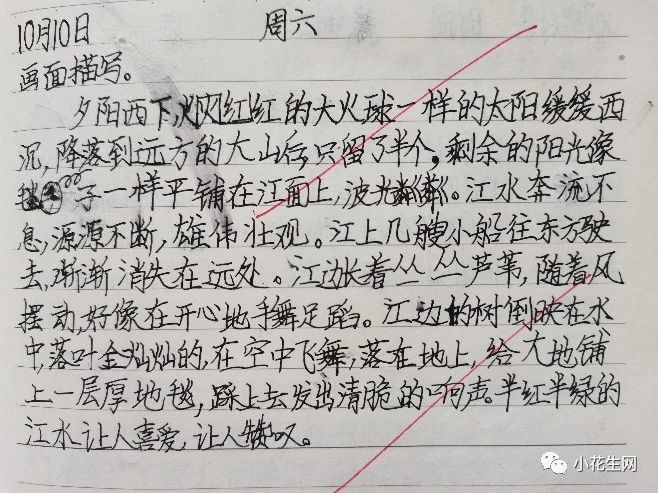 10月10日 周六
画面描写。
夕阳西下,火红火红的大火球一样的太阳缓缓西
沉,降落到远方的大山后,只留了半个。剩余的阳光像
毯子一样平铺在江面上,波光粼粼。江水奔流不
息,源源不断,雄伟壮观。江上几艘小船往东方驶
去,渐渐消失在远处。江边长着丛丛芦苇,随着风
摆动,好像在开心地手舞足蹈。江边的树倒映在水
中,落叶金灿灿的,在空中飞舞,落在地上,给大地铺
上一层厚地毯,踩上去发出清脆的响声。半红半绿的
江水让人喜爱,让人赞叹。
小花生网